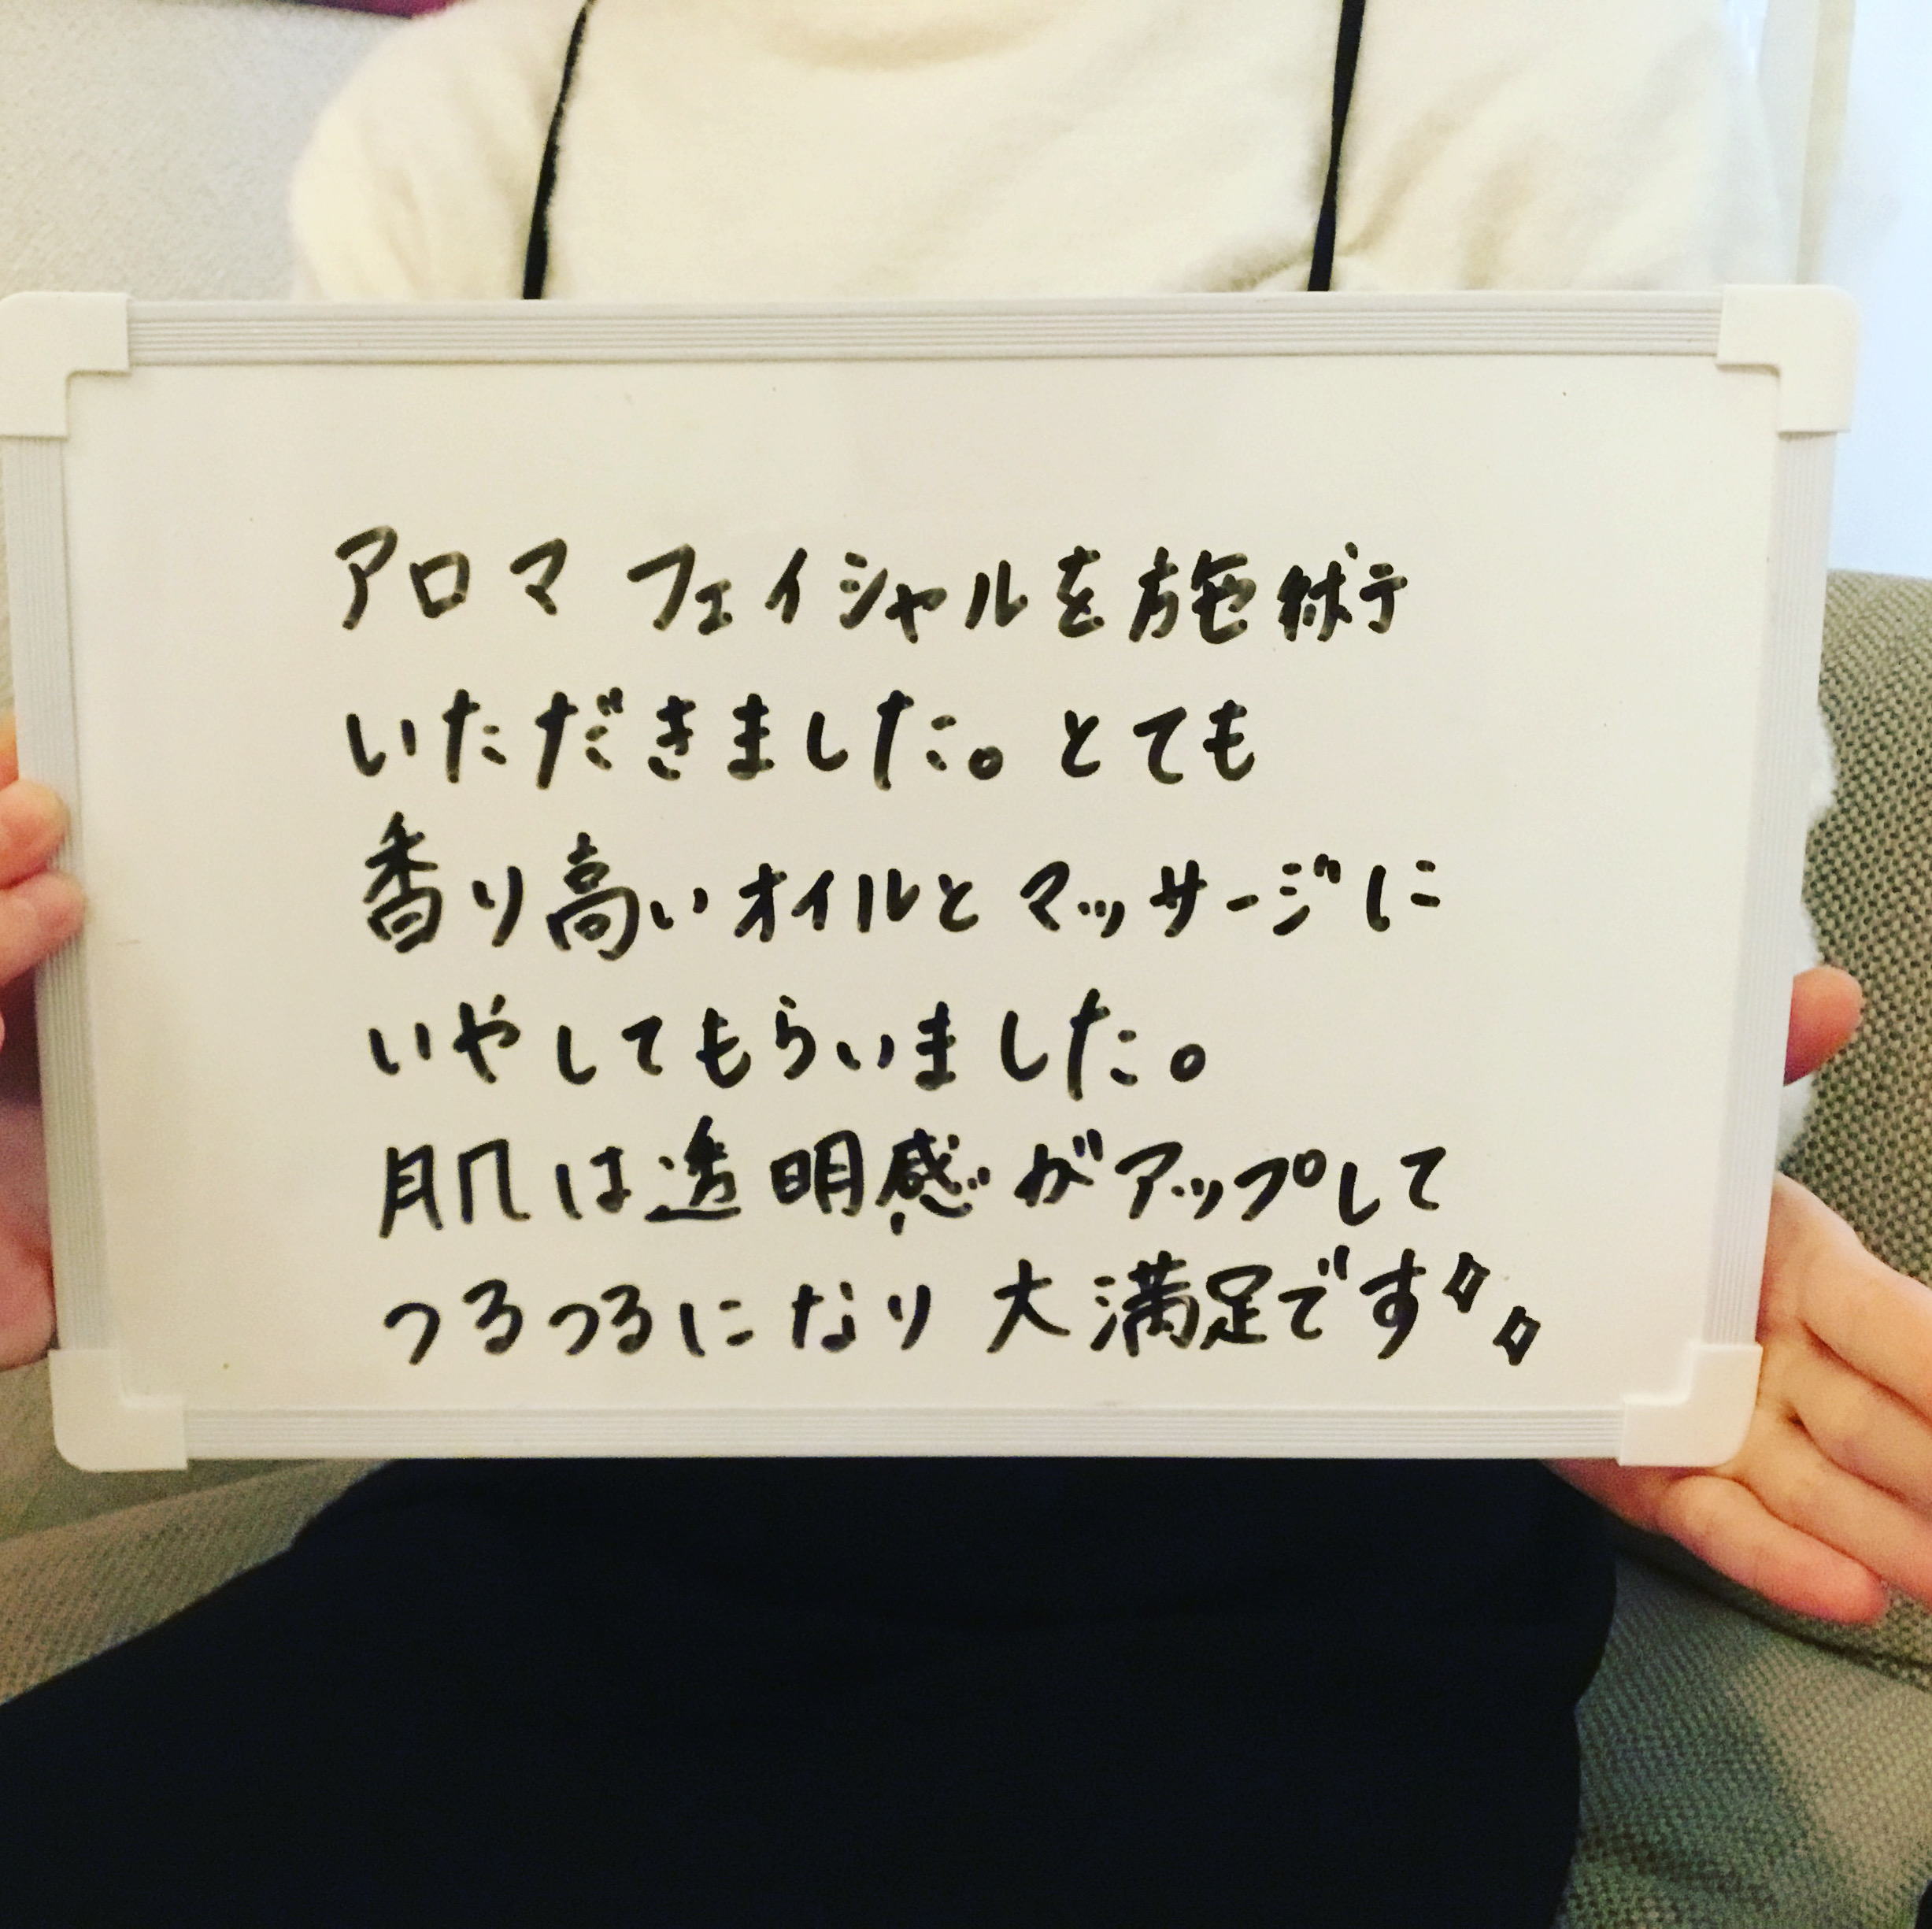 アロマフェイシャルを施術
いただきました。とても
香り高いオイルとマッサージに
いやしてもらいました。
肌は透明感がアップして
つるつるになり大満足です